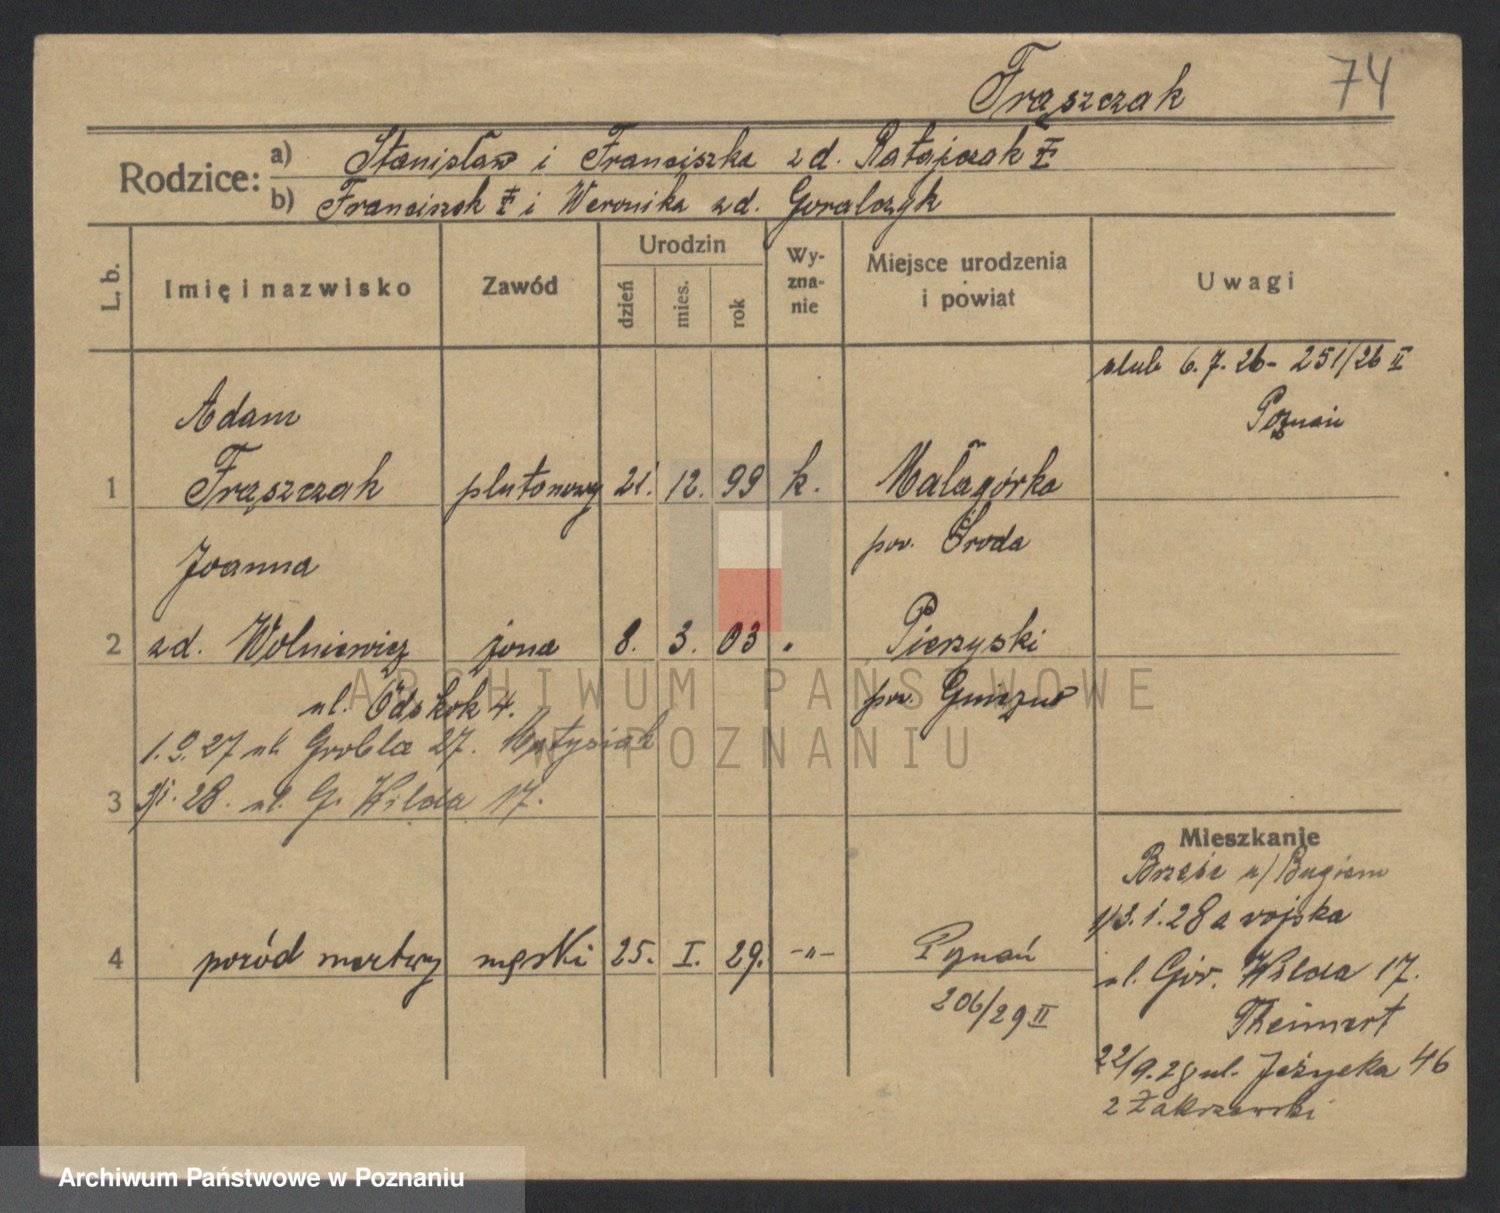 Frąszczak 74
Rodzice: a) Stanisław i Franciszka zd. Ratajczak ‡
b) Franciszek ‡ i Weronika zd. Goralczyk
L. b. Imię i nazwisko Zawód Urodzin dzień mies. rok Wyznanie Miejsce urodzenia i powiat Uwagi
slub 6.7.26 - 251/26 II
Poznań
Adam
1 Frąszczak plutonowy 21. 12. 99 k. Małagórka
pow. Środa
Joanna
2 zd. Wolniewicz żona 8. 3. 03 " Pierzyski
pow. Gniezno
ul. Odskok 4.
1.9.27 ul. Grobla 27. Matysiak
3 28. ul. G. Wilda 17.
Mieszkanie
Brześć n/Bugiem
1/3.1.28 z wojska
4 poród martwy męski 25. I. 29. -"- Poznań
ul. Gór. Wilda 17.
206/29 II
22/9.28 ul. Jeżycka 46
z Zakrzewski
ARCHIWUM PAŃSTWOWE
W POZNANIU
Archiwum Państwowe w Poznaniu